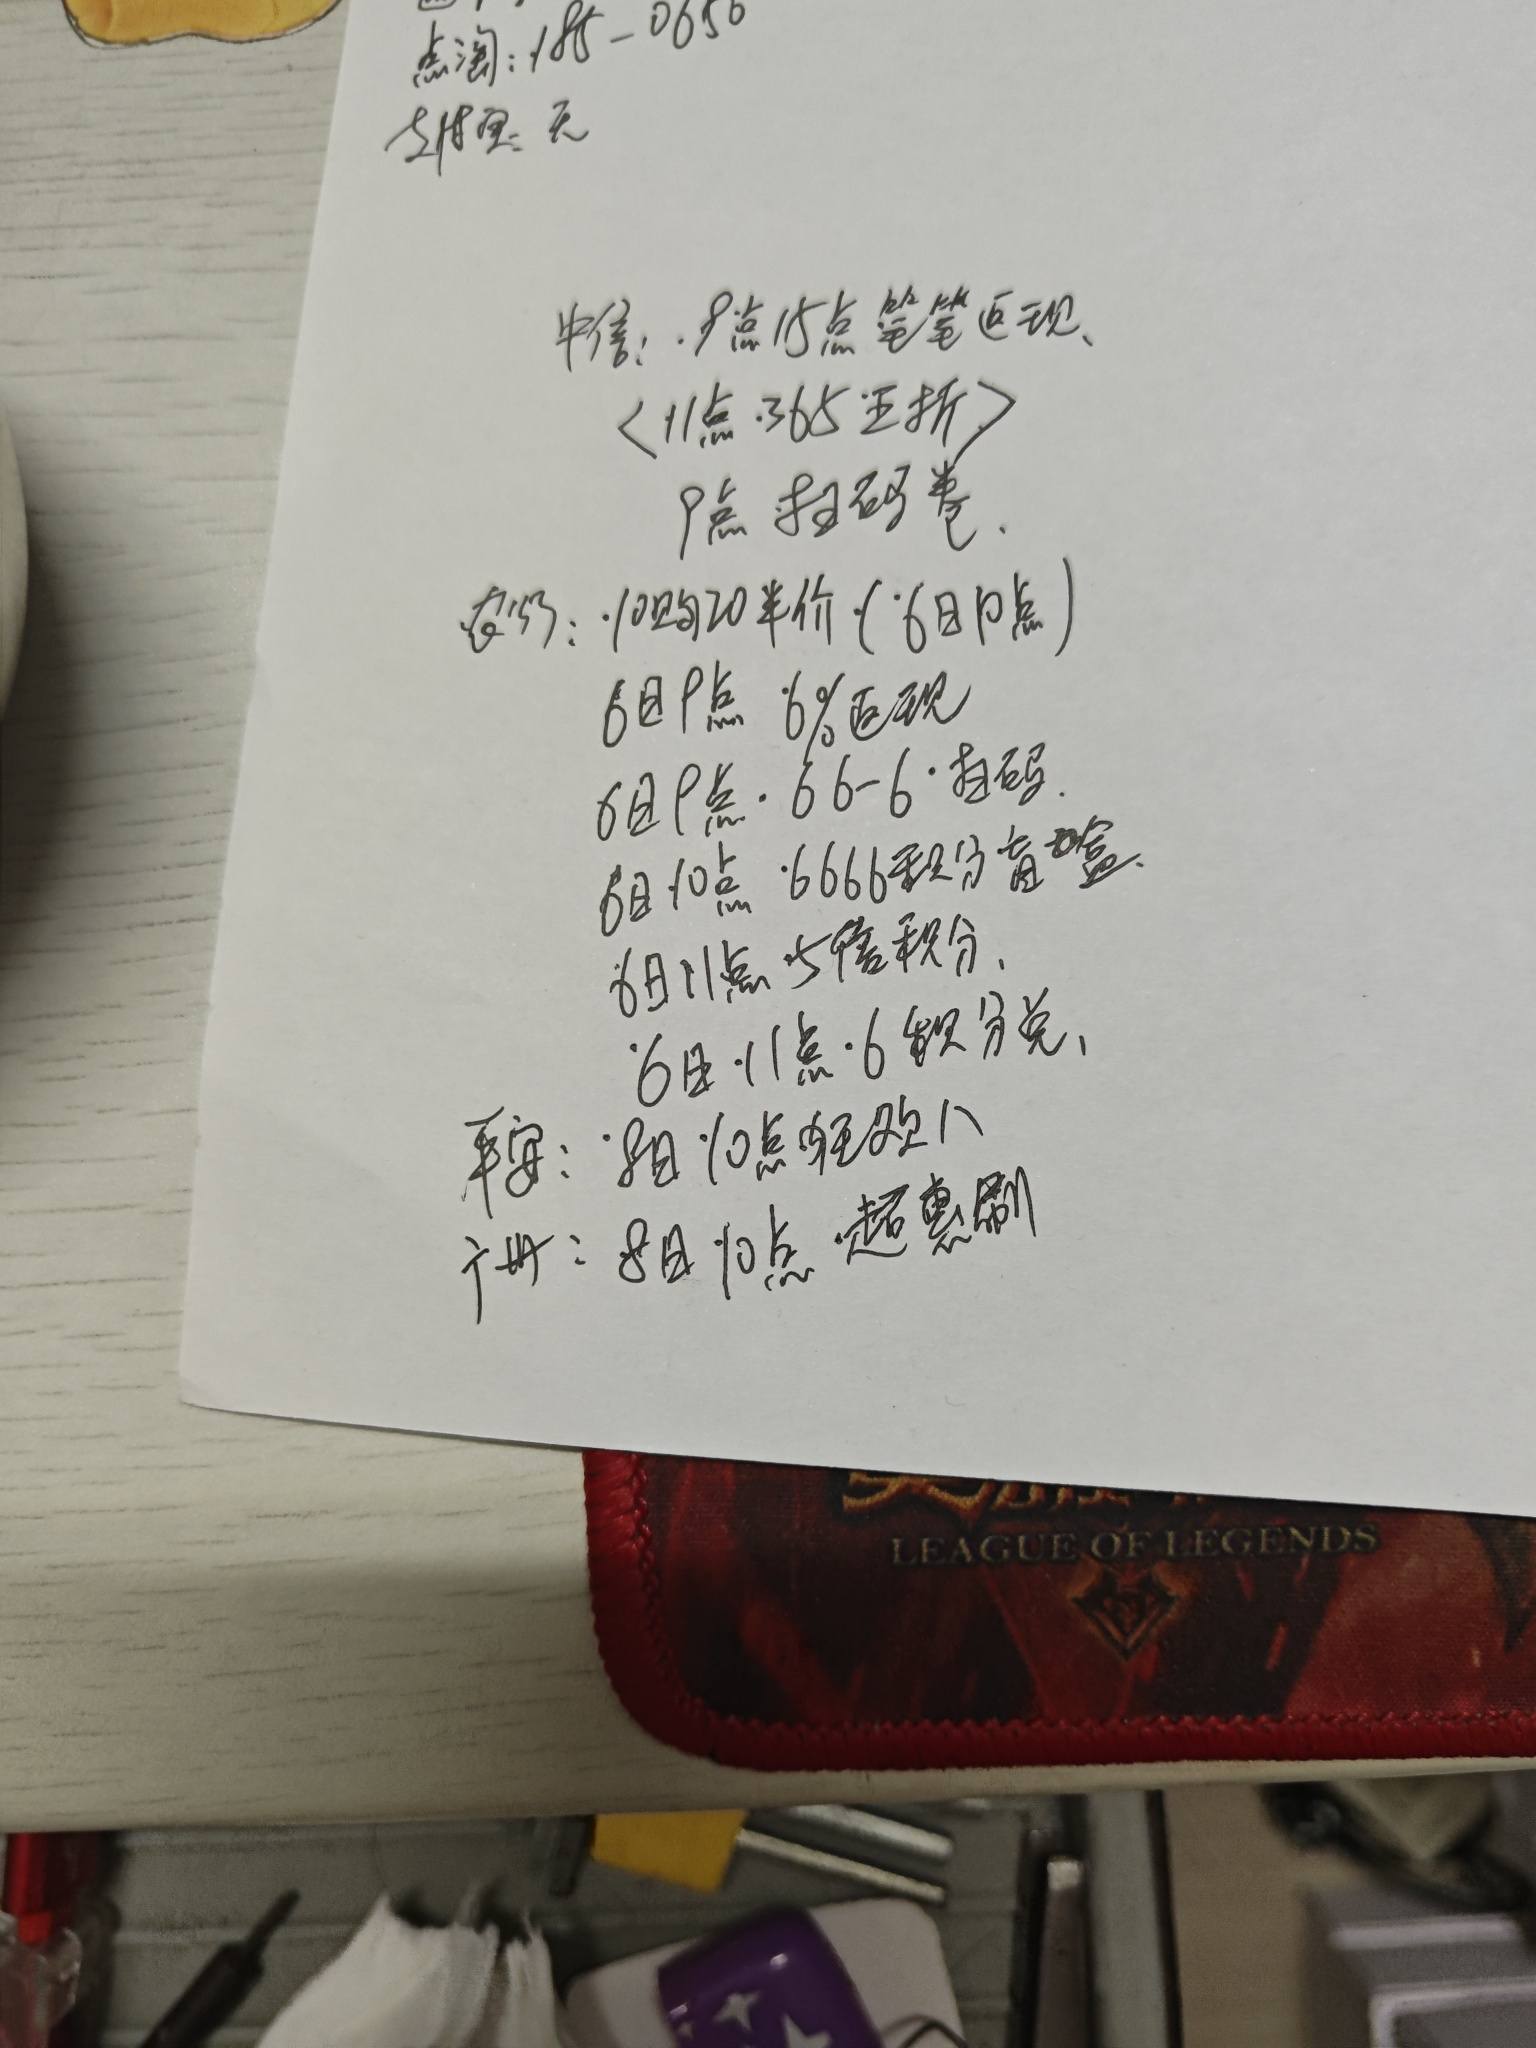 点淘：185-0650
支付宝：无
中信：.9点15点笔笔返现、
<11点.365五折>
9点 扫码卷.
农行：.10购20半价.(.6日10点)
6日9点 .6%返现
6日9点.66-6.扫码.
6日10点 .6666积分盲盒.
6日11点.5倍积分、
.6日.11点.6积分兑、
平安：.8日10点狂欢八
广州：8日10点.超惠刷
LEAGUE OF LEGENDS